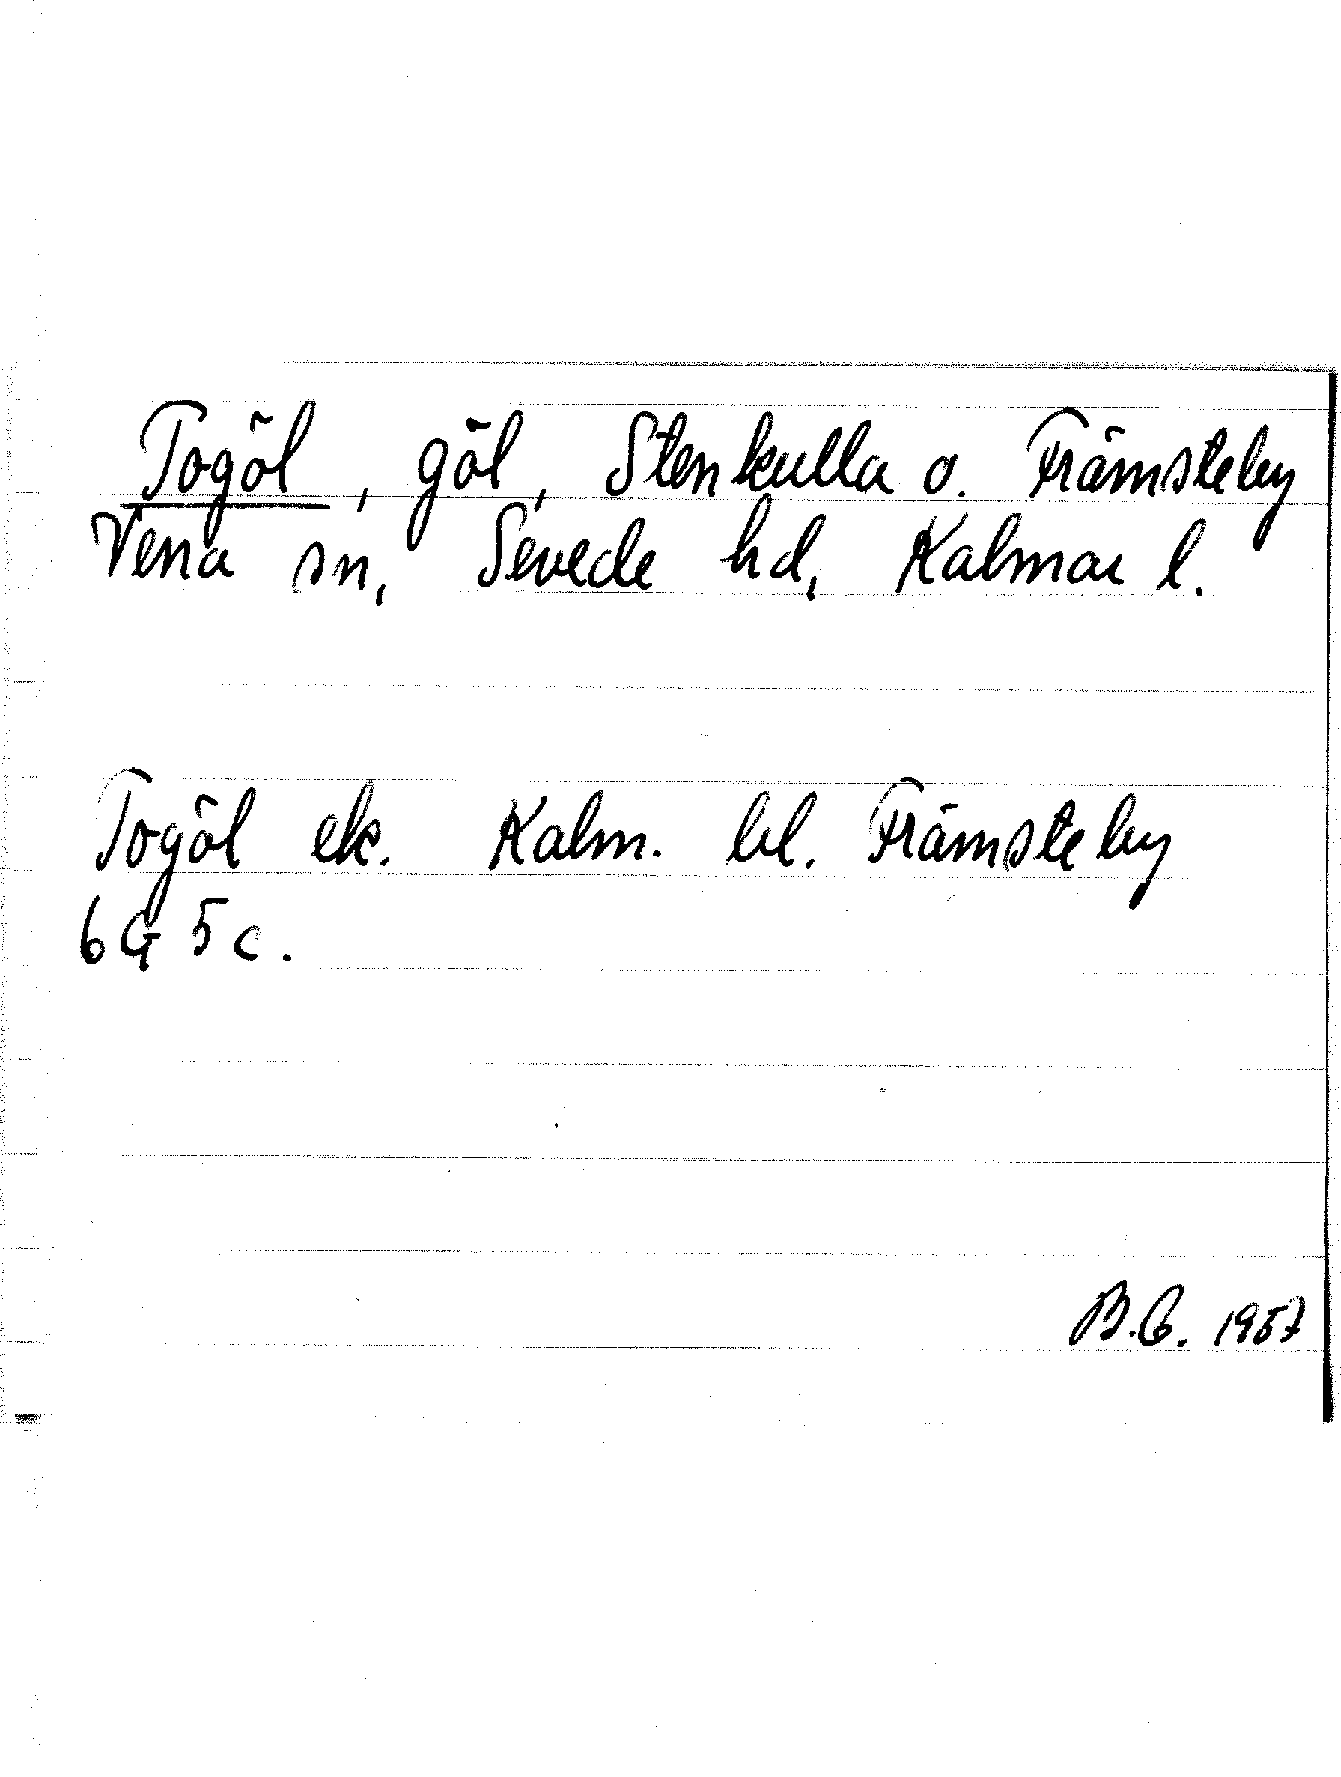 Togöl, göl, Stenkulla o. Främsteby
Vena sn, Sevede hd, Kalmar l.
Togöl ek. Kalm. bl. Främsteby
6G 5c.
B.G. 1957